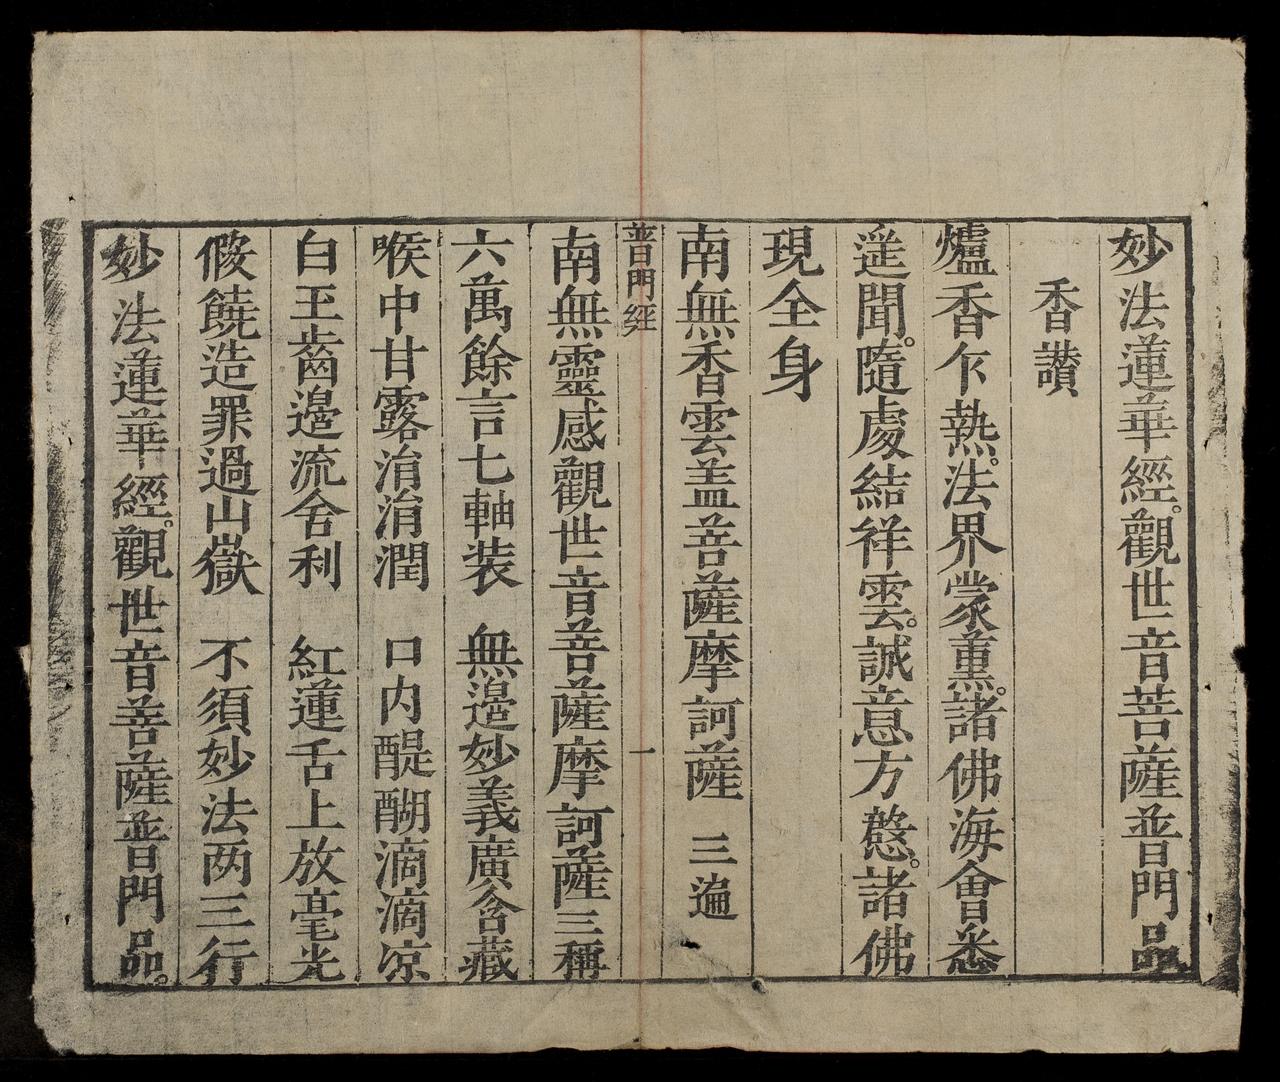 妙法蓮華經。觀世音菩薩普門品
香讚
爐香乍熱。法界蒙薰。諸佛海會悉
遙聞。隨處結祥雲。誠意方慇。諸佛
現全身
南無香雲盖菩薩摩訶薩 三遍
普門經 一
南無靈感觀世音菩薩摩訶薩三稱
六萬餘言七軸装 無邊妙義廣含藏
喉中甘露涓涓潤 口内醍醐滴滴凉
白玉齒邊流舍利 紅蓮舌上放毫光
假饒造罪過山嶽 不須妙法两三行
妙法蓮華經。觀世音菩薩普門品。